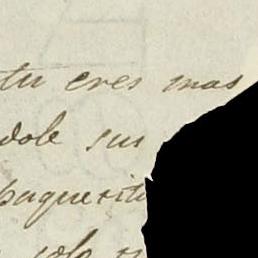 tu eres mas
dole sus
paquerito
solo